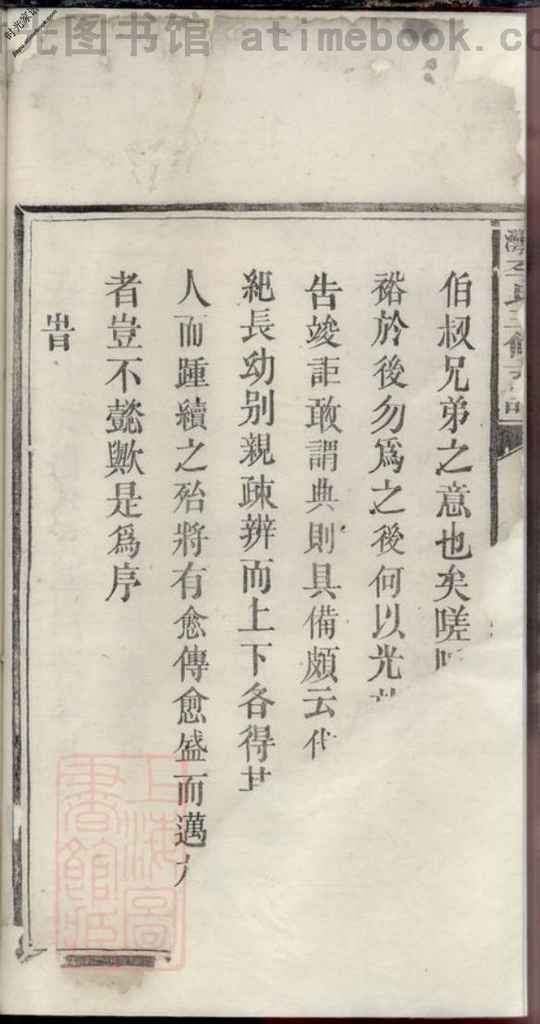 光图书馆 atimebook.co
伯叔兄弟之意也矣嗟
裕於後勿為之後何以光
告竣詎敢謂典則具備頗云
紀長幼别親疎辨而上下各得
人而踵續之殆將有愈傳愈盛而邁
者豈不懿歟是為序
旹
上海圖書館